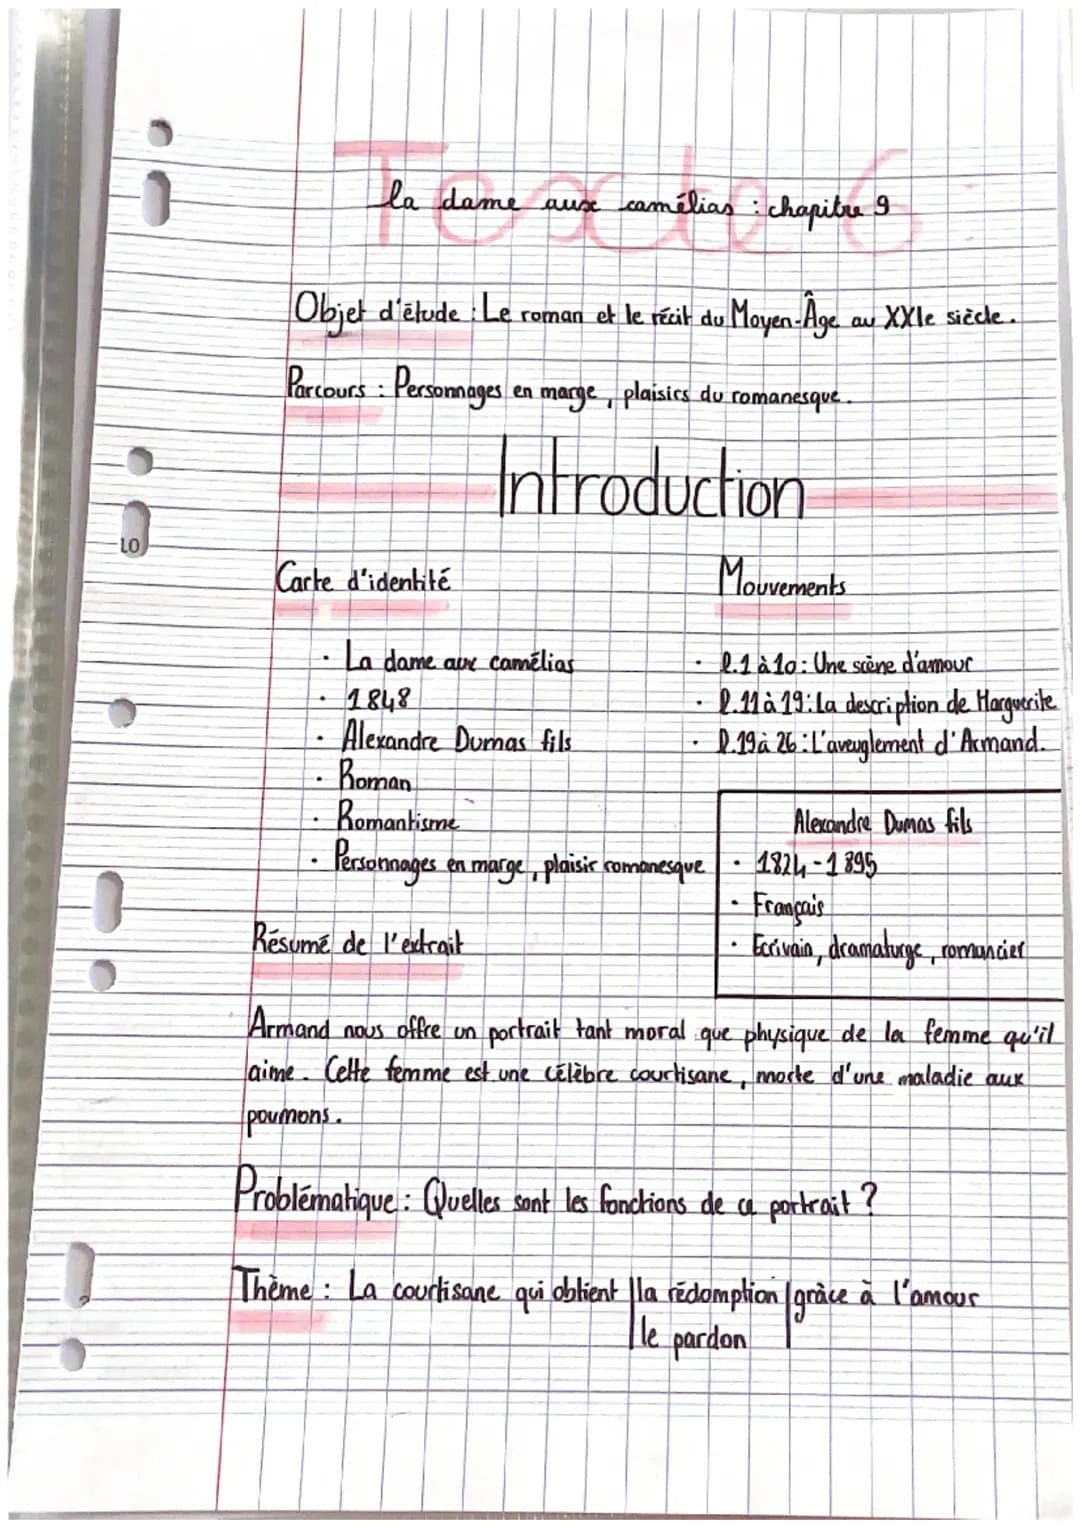 Texte 6
la dame aux camélias : chapitre 9
Objet d'étude : Le roman et le récit du Moyen-Âge au XXIe siècle.
Parcours : Personnages en marge, plaisirs du romanesque.
Introduction
LO
Carte d'identité
· La dame aux camélias
· 1848
· Alexandre Dumas fils
· Roman
· Romantisme
· Personnages en marge, plaisir romanesque
Mouvements
· l.1 à 10 : Une scène d'amour
· l.11 à 19 : La description de Marguerite
· l.19 à 26 : L'aveuglement d'Armand.
Alexandre Dumas fils
· 1824-1895
· Français
· Ecrivain, dramaturge, romancier
Résumé de l'extrait
Armand nous offre un portrait tant moral que physique de la femme qu'il
aime. Cette femme est une célèbre courtisane, morte d'une maladie aux
poumons.
Problématique : Quelles sont les fonctions de ce portrait ?
Thème : La courtisane qui obtient | la rédomption | grâce à l'amour
| le pardon |